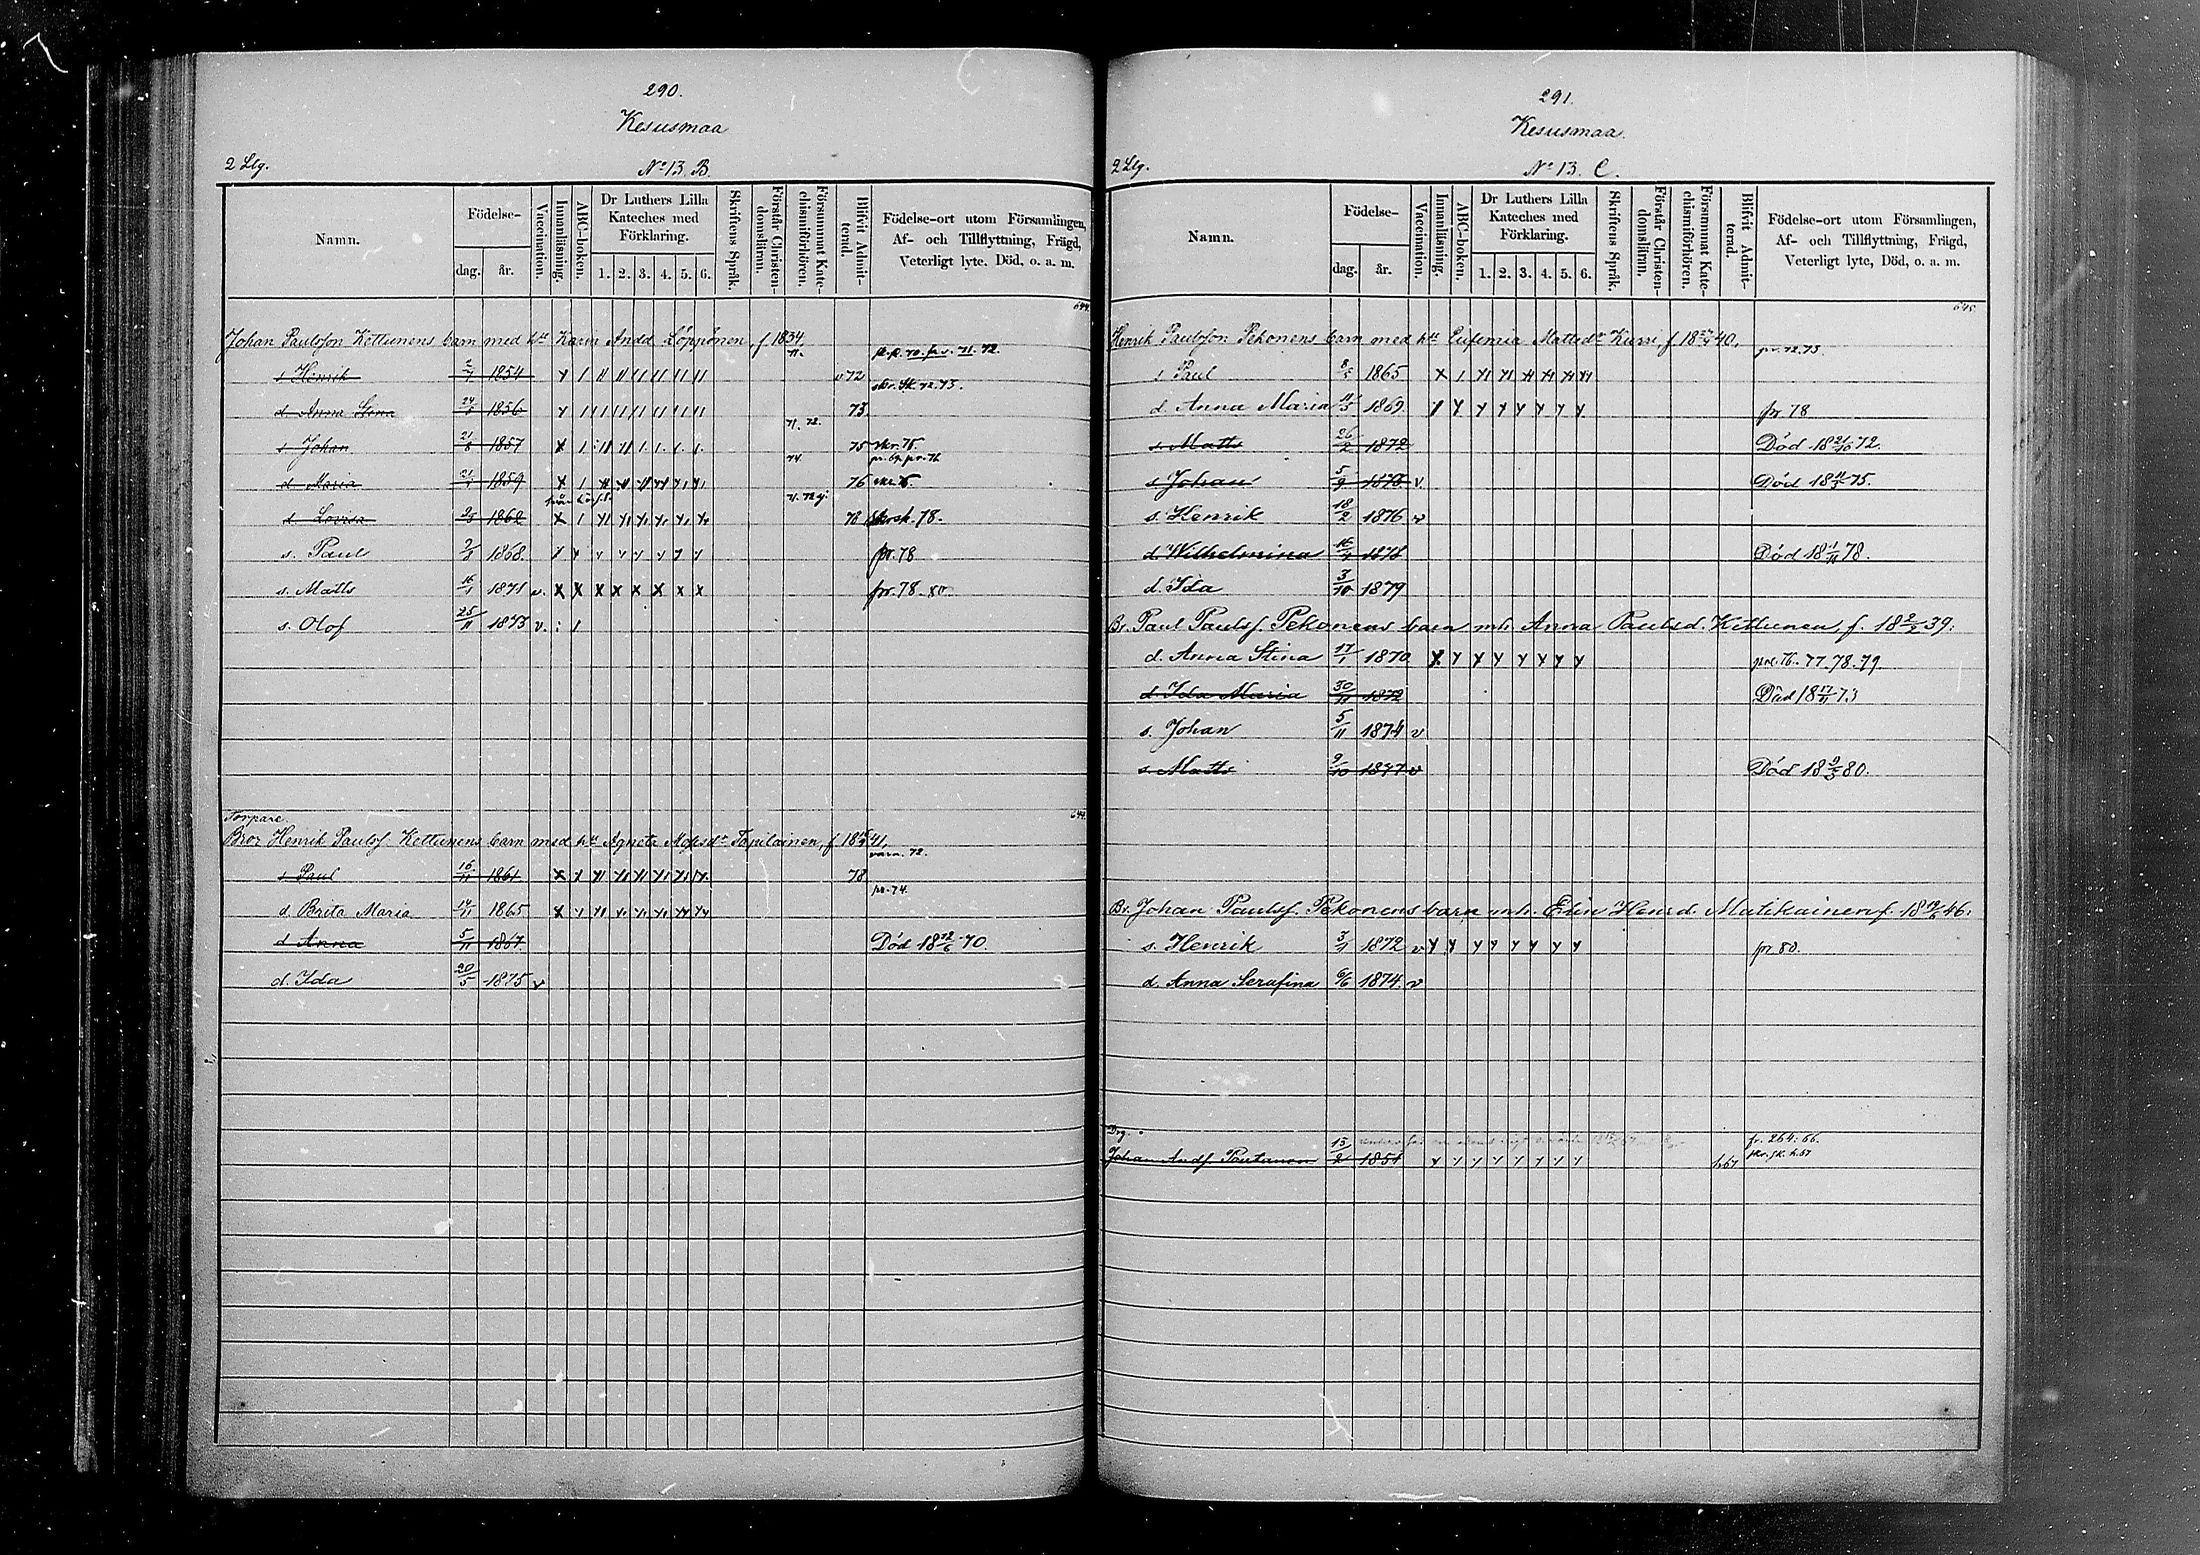 290.
Kesusmaa
2 Lbg.
No 13. B.
Namn.
Födelse-
dag.
år.
Vaccination.
Innanläsning.
ABC-boken.
Dr Luthers Lilla Kateches med Förklaring.
1. 2. 3. 4. 5. 6.
Skriftens Språk.
Förstår Christendomsläran.
Försummat Katechismiförhören.
Blifvit Admitterad.
Födelse-ort utom Församlingen,
Af- och Tillflyttning, Frägd,
Veterligt lyte, Död, o. a. m.
644.
Johan Paulsson Kettunens barn med h. Karin Andd Löppönen, f 1834.
s Henrik 1854 72
d Anna 24/5 1856 73
71. 72.
s Johan 21/8 1857 75
d Maria 1859 76
d Lovisa 1862 78 78.
s. Paul 1868. pr. 78
s. Matts 16/1 1871 v. pr. 78. 80
s. Olof 25/11 1873 v.
Torpare. 644.
Bror Henrik Paulsf. Kettunens barn med h. Agneta Mosesd. Tapilainen, f 18 41,
s Paul 16/11 1861 78
pr. 74.
d Brita Maria 14/11 1865
d Anna 5/11 1867 Död 18 70.
d. Ida 20/5 1875 v
291.
Kesusmaa.
2 Lbg.
No 13. C.
Namn.
Födelse-
dag.
år.
Vaccination.
Innanläsning.
ABC-boken.
Dr Luthers Lilla Kateches med Förklaring.
1. 2. 3. 4. 5. 6.
Skriftens Språk.
Förstår Christendomsläran.
Försummat Katechismiförhören.
Blifvit Admitterad.
Födelse-ort utom Församlingen,
Af- och Tillflyttning, Frägd,
Veterligt lyte, Död, o. a. m.
645.
Henrik Paulsson Pekonens barn med h. Eufemia Mattsd. Kurri, f 18 40,
s Paul 8/5 1865 pr. 72. 75.
d. Anna Maria 1869. pr. 78
s. Matts 26/2 1872 Död 18 21/10 72.
s. Johan 5/9 1873 v. Död 18 75.
s. Henrik 18/2 1876 v
d. Wilhelmina 1878 Död 18 1/11 78.
d. Ida 3/10 1879
Br. Paul Paulsf. Pekonens barn m.h. Anna Paulsd. Kettunen, f. 18 2/2 39:
d. Anna Stina 17/1 1870 77. 78. 79.
d. Ida Maria 30/11 1872 Död 18 17/11 73
s. Johan 5/11 1874 v
s. Matts 9/10 1877 v Död 18 9/3 80.
Br. Johan Paulsf. Pekonens barn m.h. Elin Henrd. Matikainen f. 18 46:
s. Henrik 3/11 1872 v pr. 80.
d. Anna Serafina 6/6 1874. v
Drg.
Johan Andf. Pautanen 15/2 1851 h 67 fr. 264: 66.